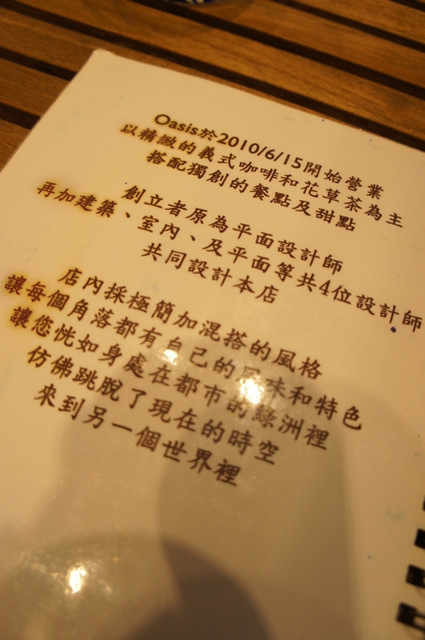 Oasis於2010/6/15開始營業
以精緻的義式咖啡和花草茶為主
搭配獨創的餐點及甜點
創立者原為平面設計師
再加建築、室內、及平面等共4位設計師
共同設計本店
店內採極簡加混搭的風格
讓每個角落都有自己的風味和特色
讓您恍如身處在都市的綠洲裡
仿佛跳脫了現在的時空
來到另一個世界裡